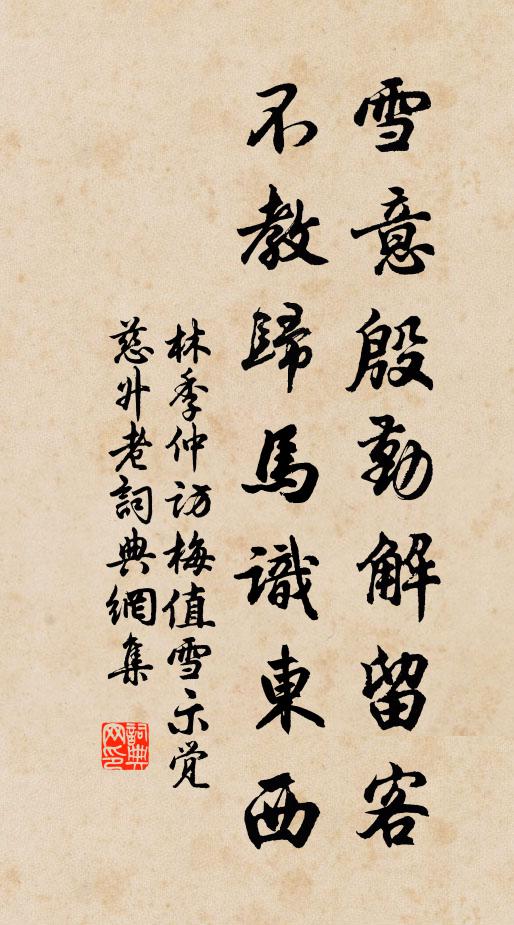 雪意殷勤解留客
不教歸馬識東西
林季仲訪梅值雪示觉
慈舛老詞典網集
詞典网印